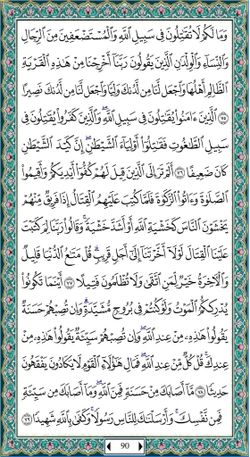 وَمَا لَكُمْ لَا تُقَٰتِلُونَ فِى سَبِيلِ ٱللَّهِ وَٱلْمُسْتَضْعَفِينَ مِنَ ٱلرِّجَالِ
وَٱلنِّسَآءِ وَٱلْوِلْدَٰنِ ٱلَّذِينَ يَقُولُونَ رَبَّنَآ أَخْرِجْنَا مِنْ هَٰذِهِ ٱلْقَرْيَةِ
ٱلظَّالِمِ أَهْلُهَا وَٱجْعَل لَّنَا مِن لَّدُنكَ وَلِيًّا وَٱجْعَل لَّنَا مِن لَّدُنكَ نَصِيرًا
٧٥ ٱلَّذِينَ ءَامَنُوا۟ يُقَٰتِلُونَ فِى سَبِيلِ ٱللَّهِ ۖ وَٱلَّذِينَ كَفَرُوا۟ يُقَٰتِلُونَ فِى
سَبِيلِ ٱلطَّٰغُوتِ فَقَٰتِلُوٓا۟ أَوْلِيَآءَ ٱلشَّيْطَٰنِ ۖ إِنَّ كَيْدَ ٱلشَّيْطَٰنِ
كَانَ ضَعِيفًا ٧٦ أَلَمْ تَرَ إِلَى ٱلَّذِينَ قِيلَ لَهُمْ كُفُّوٓا۟ أَيْدِيَكُمْ وَأَقِيمُوا۟
ٱلصَّلَوٰةَ وَءَاتُوا۟ ٱلزَّكَوٰةَ فَلَمَّا كُتِبَ عَلَيْهِمُ ٱلْقِتَالُ إِذَا فَرِيقٌ مِّنْهُمْ
يَخْشَوْنَ ٱلنَّاسَ كَخَشْيَةِ ٱللَّهِ أَوْ أَشَدَّ خَشْيَةً ۚ وَقَالُوا۟ رَبَّنَا لِمَ كَتَبْتَ
عَلَيْنَا ٱلْقِتَالَ لَوْلَآ أَخَّرْتَنَآ إِلَىٰٓ أَجَلٍ قَرِيبٍ ۗ قُلْ مَتَٰعُ ٱلدُّنْيَا قَلِيلٌ
وَٱلْءَاخِرَةُ خَيْرٌ لِّمَنِ ٱتَّقَىٰ وَلَا تُظْلَمُونَ فَتِيلًا ٧٧ أَيْنَمَا تَكُونُوا۟
يُدْرِككُّمُ ٱلْمَوْتُ وَلَوْ كُنتُمْ فِى بُرُوجٍ مُّشَيَّدَةٍ ۗ وَإِن تُصِبْهُمْ حَسَنَةٌ
يَقُولُوا۟ هَٰذِهِۦ مِنْ عِندِ ٱللَّهِ ۖ وَإِن تُصِبْهُمْ سَيِّئَةٌ يَقُولُوا۟ هَٰذِهِۦ مِنْ
عِندِكَ ۚ قُلْ كُلٌّ مِّنْ عِندِ ٱللَّهِ ۖ فَمَالِ هَٰٓؤُلَآءِ ٱلْقَوْمِ لَا يَكَادُونَ يَفْقَهُونَ
حَدِيثًا ٧٨ مَّآ أَصَابَكَ مِنْ حَسَنَةٍ فَمِنَ ٱللَّهِ ۖ وَمَآ أَصَابَكَ مِن سَيِّئَةٍ
فَمِن نَّفْسِكَ ۚ وَأَرْسَلْنَٰكَ لِلنَّاسِ رَسُولًا ۚ وَكَفَىٰ بِٱللَّهِ شَهِيدًا ٧٩
90